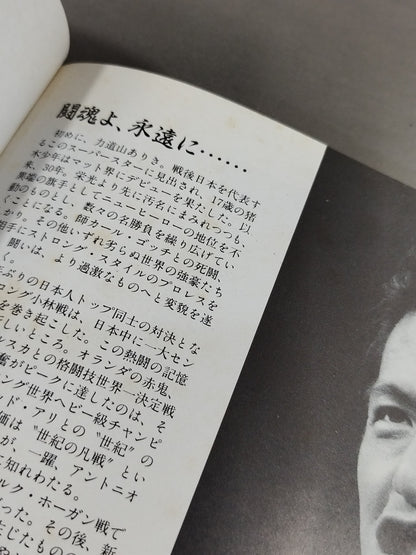 闘魂よ、永遠に……
初めに、力道山ありき。戦後日本を代表す
るこのスーパースターに見出され、17歳の猪
木少年はマット界にデビューを果たした。以
来、30年。栄光より先に汚名にまみれつつも、
異端の旗手としてニューヒーローの地位を不
動のものとし、数々の名勝負を繰り広げてい
くことになる。師カール・ゴッチとの死闘、
かり。その他いずれ劣らぬ世界の強豪たち
手にストロング・スタイルのプロレスを
闘いは、より過激なものへと変貌を遂
く。
ぶりの日本人トップ同士の対決とな
ロング小林戦は、日本中に一大セン
を巻き起こした。この熱闘の記憶
しいころ。オランダの赤鬼、
ルスカとの格闘技世界一決定戦
奮がピークに達したのは、そ
ング世界ヘビー級チャンピ
ド・アリとの〝世紀〟の
価は〝世紀の凡戦〟とい
が、一躍、アントニオ
に知れわたる。
ルク・ホーガン戦で
った。その後、新
生じたもの